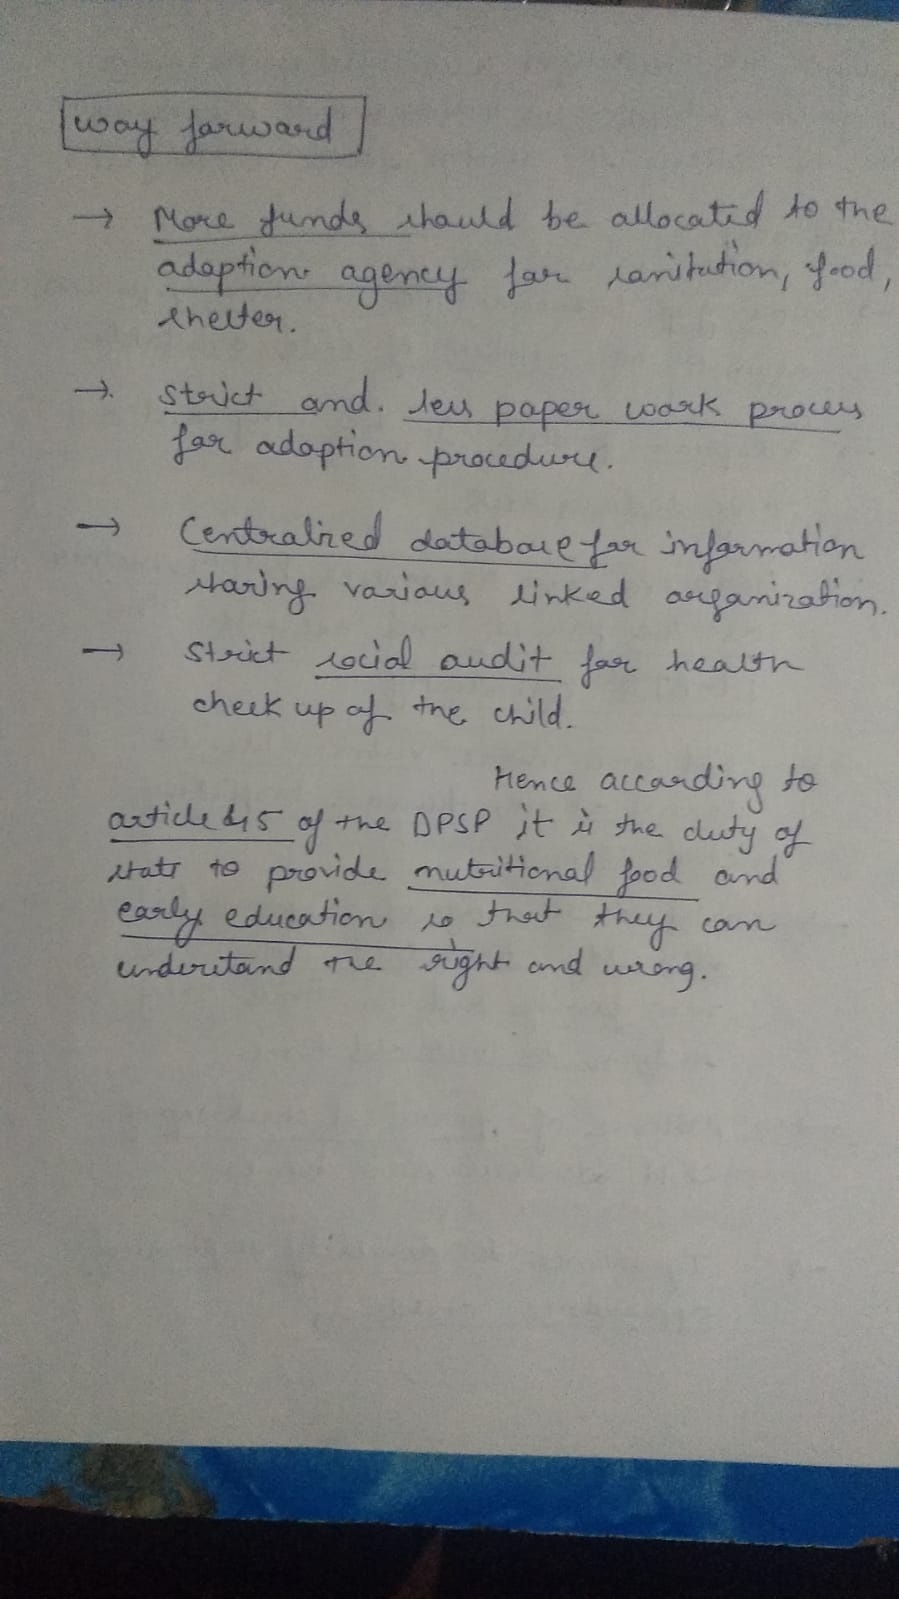 way forward
→ More funds should be allocated to the
adoption agency for sanitation, food,
shelter.
→ Strict and less paper work process
for adoption procedure.
→ Centralized database for information
sharing various linked organization.
→ Strict social audit for health
check up of the child.
Hence according to
article 45 of the DPSP it is the duty of
state to provide nutritional food and
early education so that they can
understand the right and wrong.